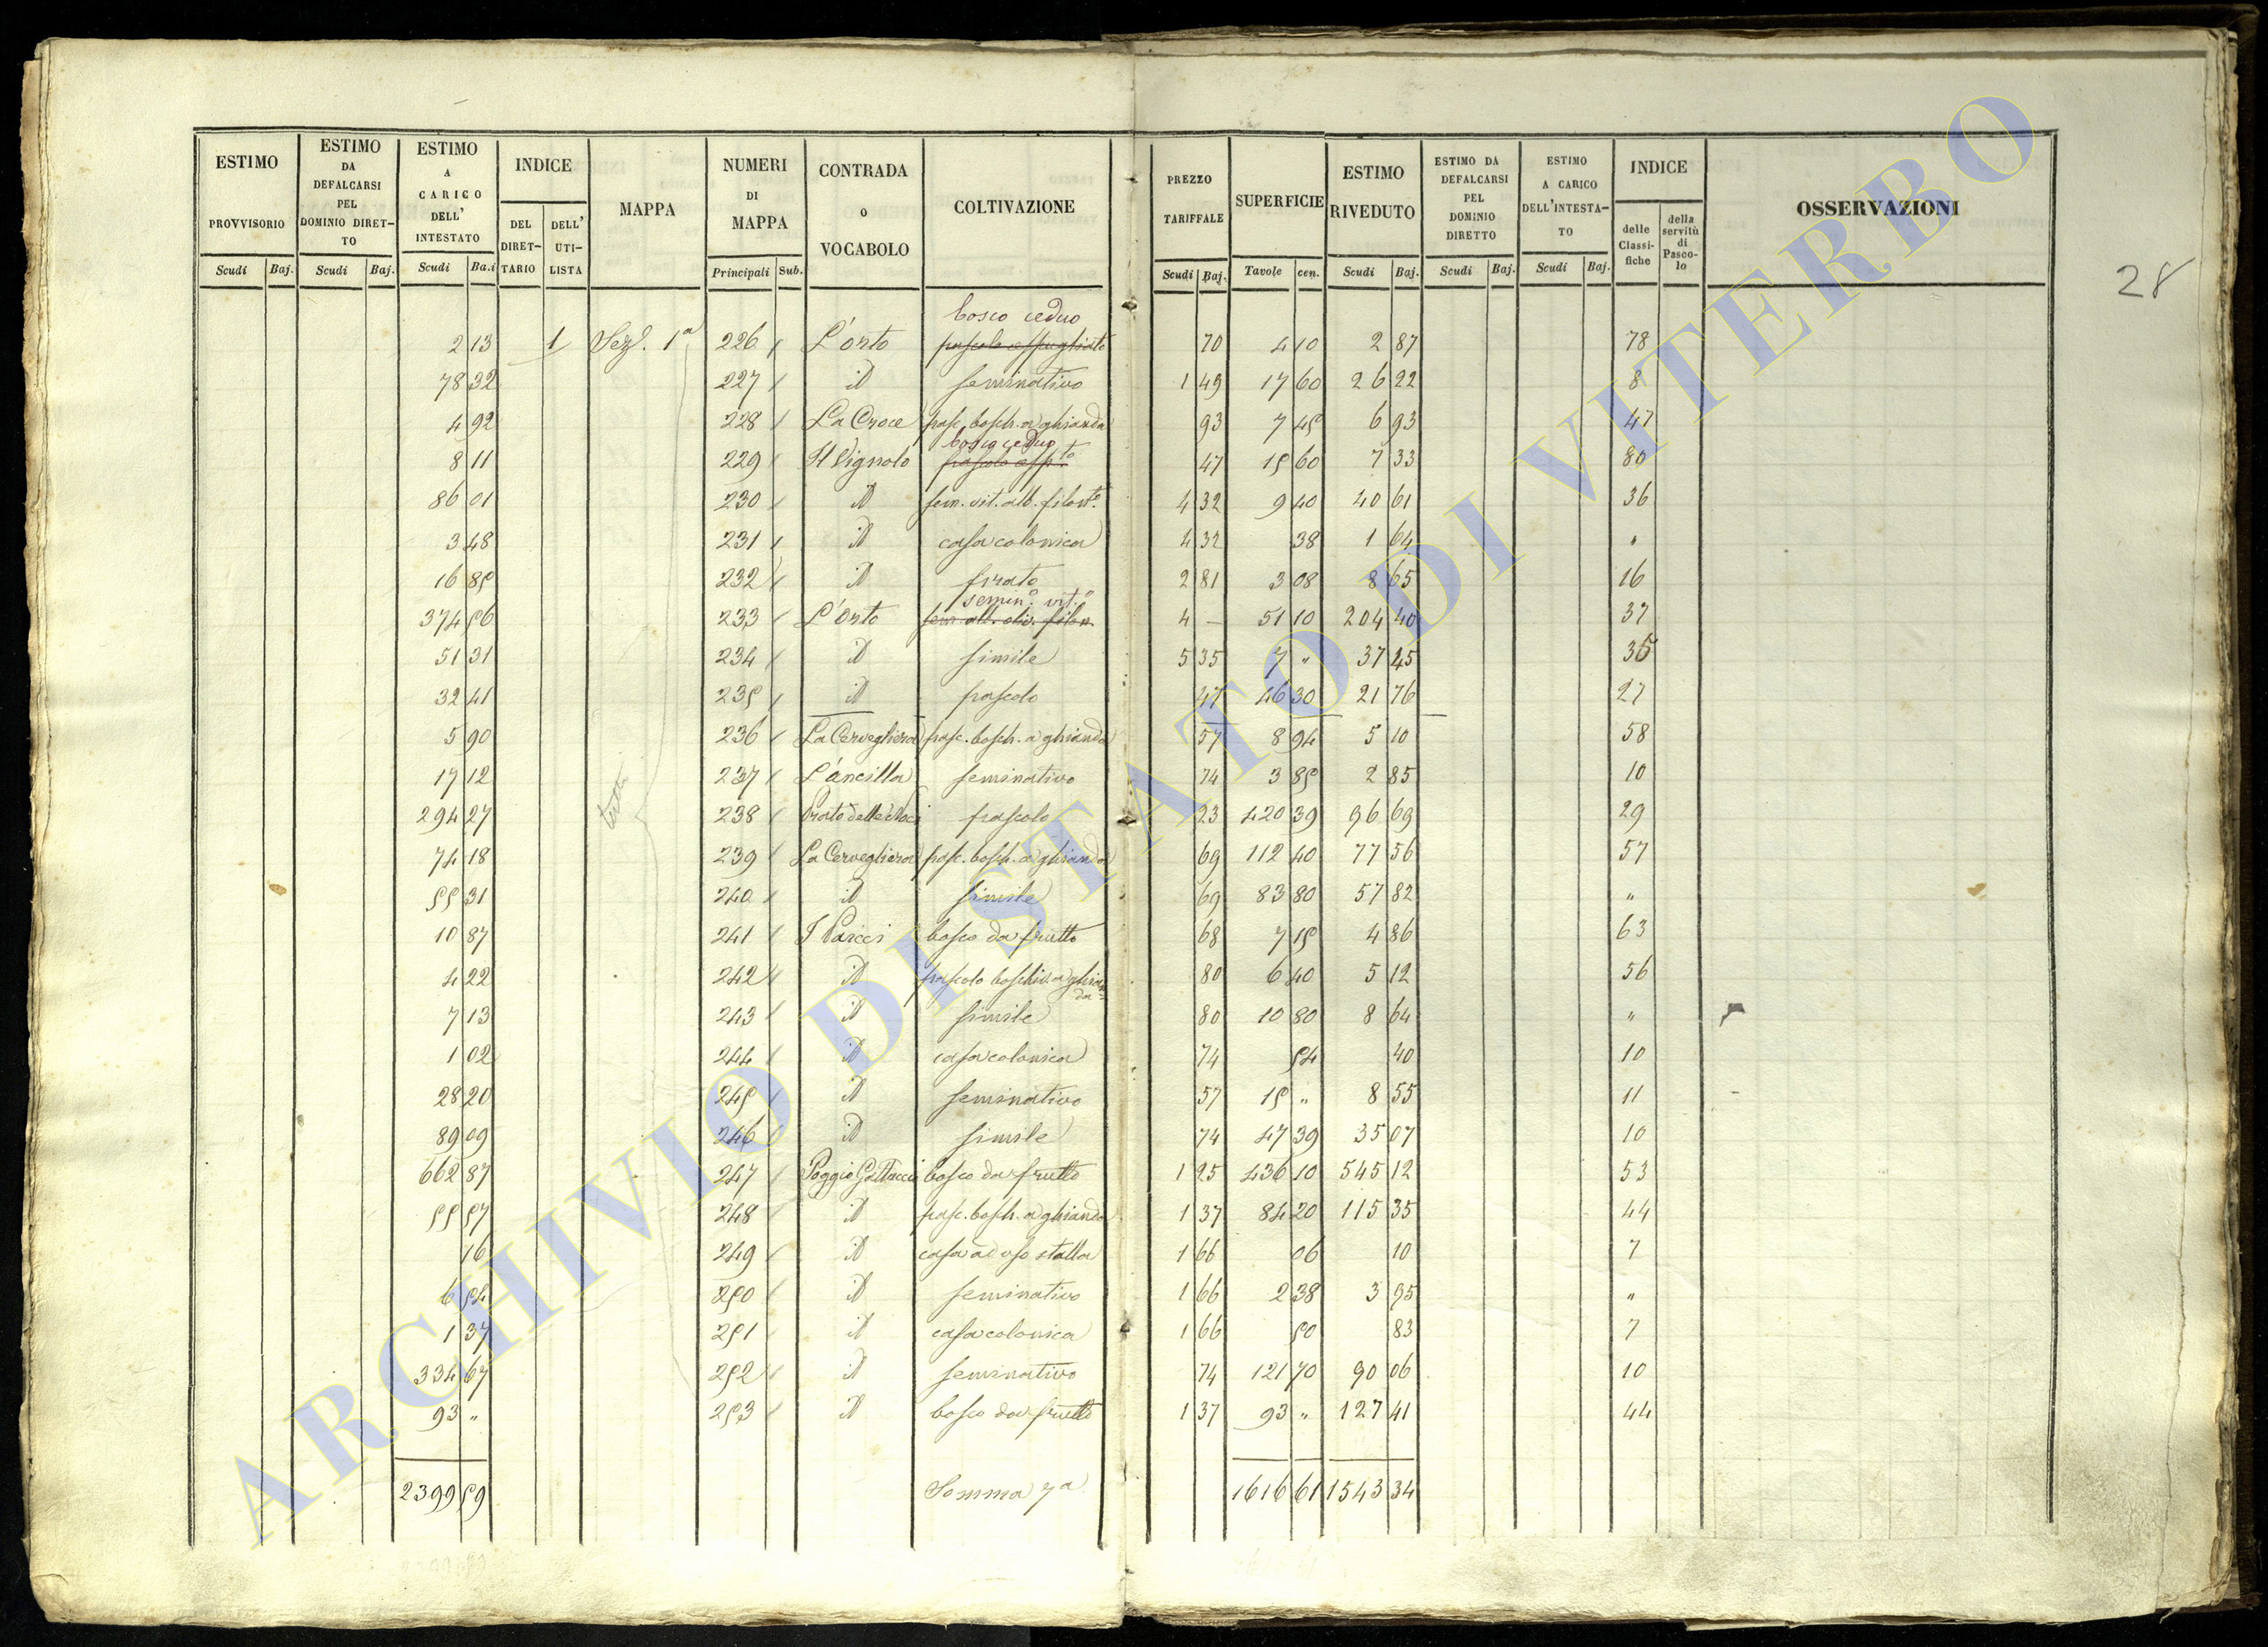 ESTIMO PROVVISORIO Scudi Baj. | ESTIMO DA DEFALCARSI PEL DOMINIO DIRET-TO Scudi Baj. | ESTIMO A CARICO DELL' INTESTATO Scudi Ba.i | INDICE DEL DIRET-TARIO DELL' UTI-LISTA | MAPPA | NUMERI DI MAPPA Principali Sub. | CONTRADA O VOCABOLO | COLTIVAZIONE | PREZZO TARIFFALE Scudi Baj. | SUPERFICIE Tavole cen. | ESTIMO RIVEDUTO Scudi Baj. | ESTIMO DA DEFALCARSI PEL DOMINIO DIRETTO Scudi Baj. | ESTIMO A CARICO DELL'INTESTA-TO Scudi Baj. | INDICE delle Classi-fiche della servitù di Pasco-lo | OSSERVAZIONI
28
bosco ceduo
2 13 1 Sez. 1a 226 L'orto pascolo cespugliato 70 4 10 2 87 78
78 32 227 id seminativo 1 49 17 60 26 22 8
4 92 228 La Croce pasc. bosch. a ghianda 93 7 45 6 93 47
bosco ceduo
8 11 229 Il Vignolo pascolo cesp.to 47 15 60 7 33 80
86 01 230 id sem. vit. alb. filont.o 4 32 9 40 40 61 36
3 48 231 id casa colonica 4 32 38 1 64 "
16 85 232 id prato 2 81 3 08 8 65 16
semin.o vit.o
374 56 233 L'Orto sem. alb. oliv. filon. 4 – 51 10 204 40 37
51 31 234 id simile 5 35 7 " 37 45 35
32 41 235 id pascolo 47 46 30 21 76 27
5 90 236 La Cervegliera pasc. bosch. a ghianda 57 8 94 5 10 58
17 12 237 L'ancilla seminativo 74 3 85 2 85 10
tutti
294 27 238 Prato delle Noci pascolo 23 420 39 96 69 29
74 18 239 La Cervegliera pasc. bosch. a ghianda 69 112 40 77 56 57
55 31 240 id simile 69 83 80 57 82 "
10 87 241 I bosco da frutto 68 7 15 4 86 63
4 22 242 id pascolo boschiv. a ghian da 80 6 40 5 12 56
7 13 243 id simile 80 10 80 8 64 "
1 02 244 id casa colonica 74 54 40 10
28 20 245 id seminativo 57 15 " 8 55 11
89 09 246 id simile 74 47 39 35 07 10
662 87 247 Poggio Gattuccio bosco da frutto 1 25 436 10 545 12 53
55 57 248 id pasc. bosch. a ghianda 1 37 84 20 115 35 44
16 249 id casa ad uso stalla 1 66 06 10 7
6 54 250 id seminativo 1 66 2 38 3 95 "
1 37 251 id casa colonica 1 66 50 83 7
334 67 252 id seminativo 74 121 70 90 06 10
93 " 253 id bosco da frutto 1 37 93 " 127 41 44
2399 59 Somma 7a 1616 61 1543 34
ARCHIVIO DI STATO DI VITERBO